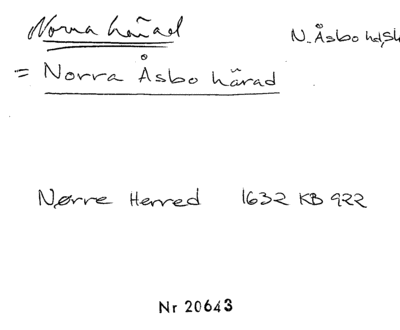 Norra härad N. Åsbo hd, Sk
= Norra Åsbo härad
Nørre Herred 1632 KB 922
Nr 20643